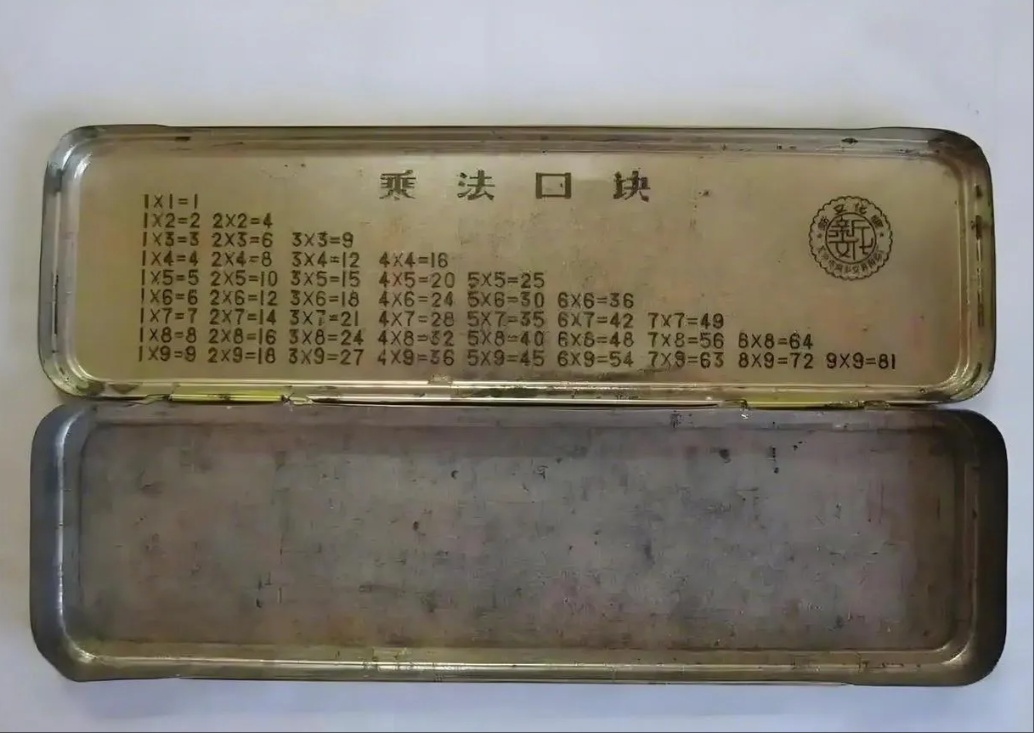 乘法口诀
1×1=1
1×2=2 2×2=4
1×3=3 2×3=6 3×3=9
1×4=4 2×4=8 3×4=12 4×4=16
1×5=5 2×5=10 3×5=15 4×5=20 5×5=25
1×6=6 2×6=12 3×6=18 4×6=24 5×6=30 6×6=36
1×7=7 2×7=14 3×7=21 4×7=28 5×7=35 6×7=42 7×7=49
1×8=8 2×8=16 3×8=24 4×8=32 5×8=40 6×8=48 7×8=56 8×8=64
1×9=9 2×9=18 3×9=27 4×9=36 5×9=45 6×9=54 7×9=63 8×9=72 9×9=81
新文化牌